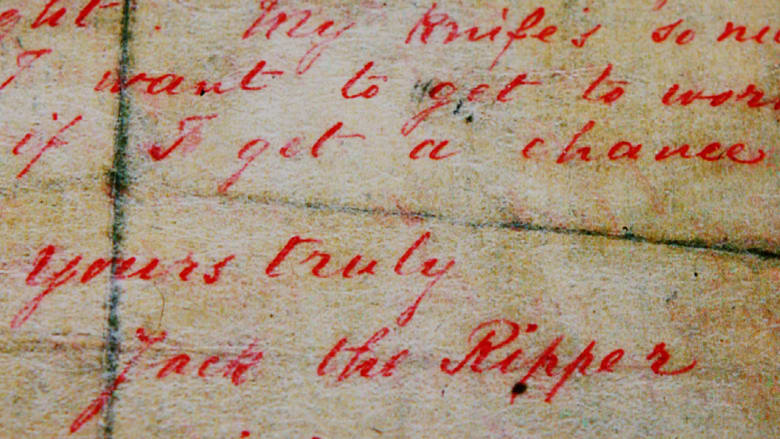 ght. My Knife's so ni
I want to get to wor
if I get a chance
yours truly
Jack the Ripper